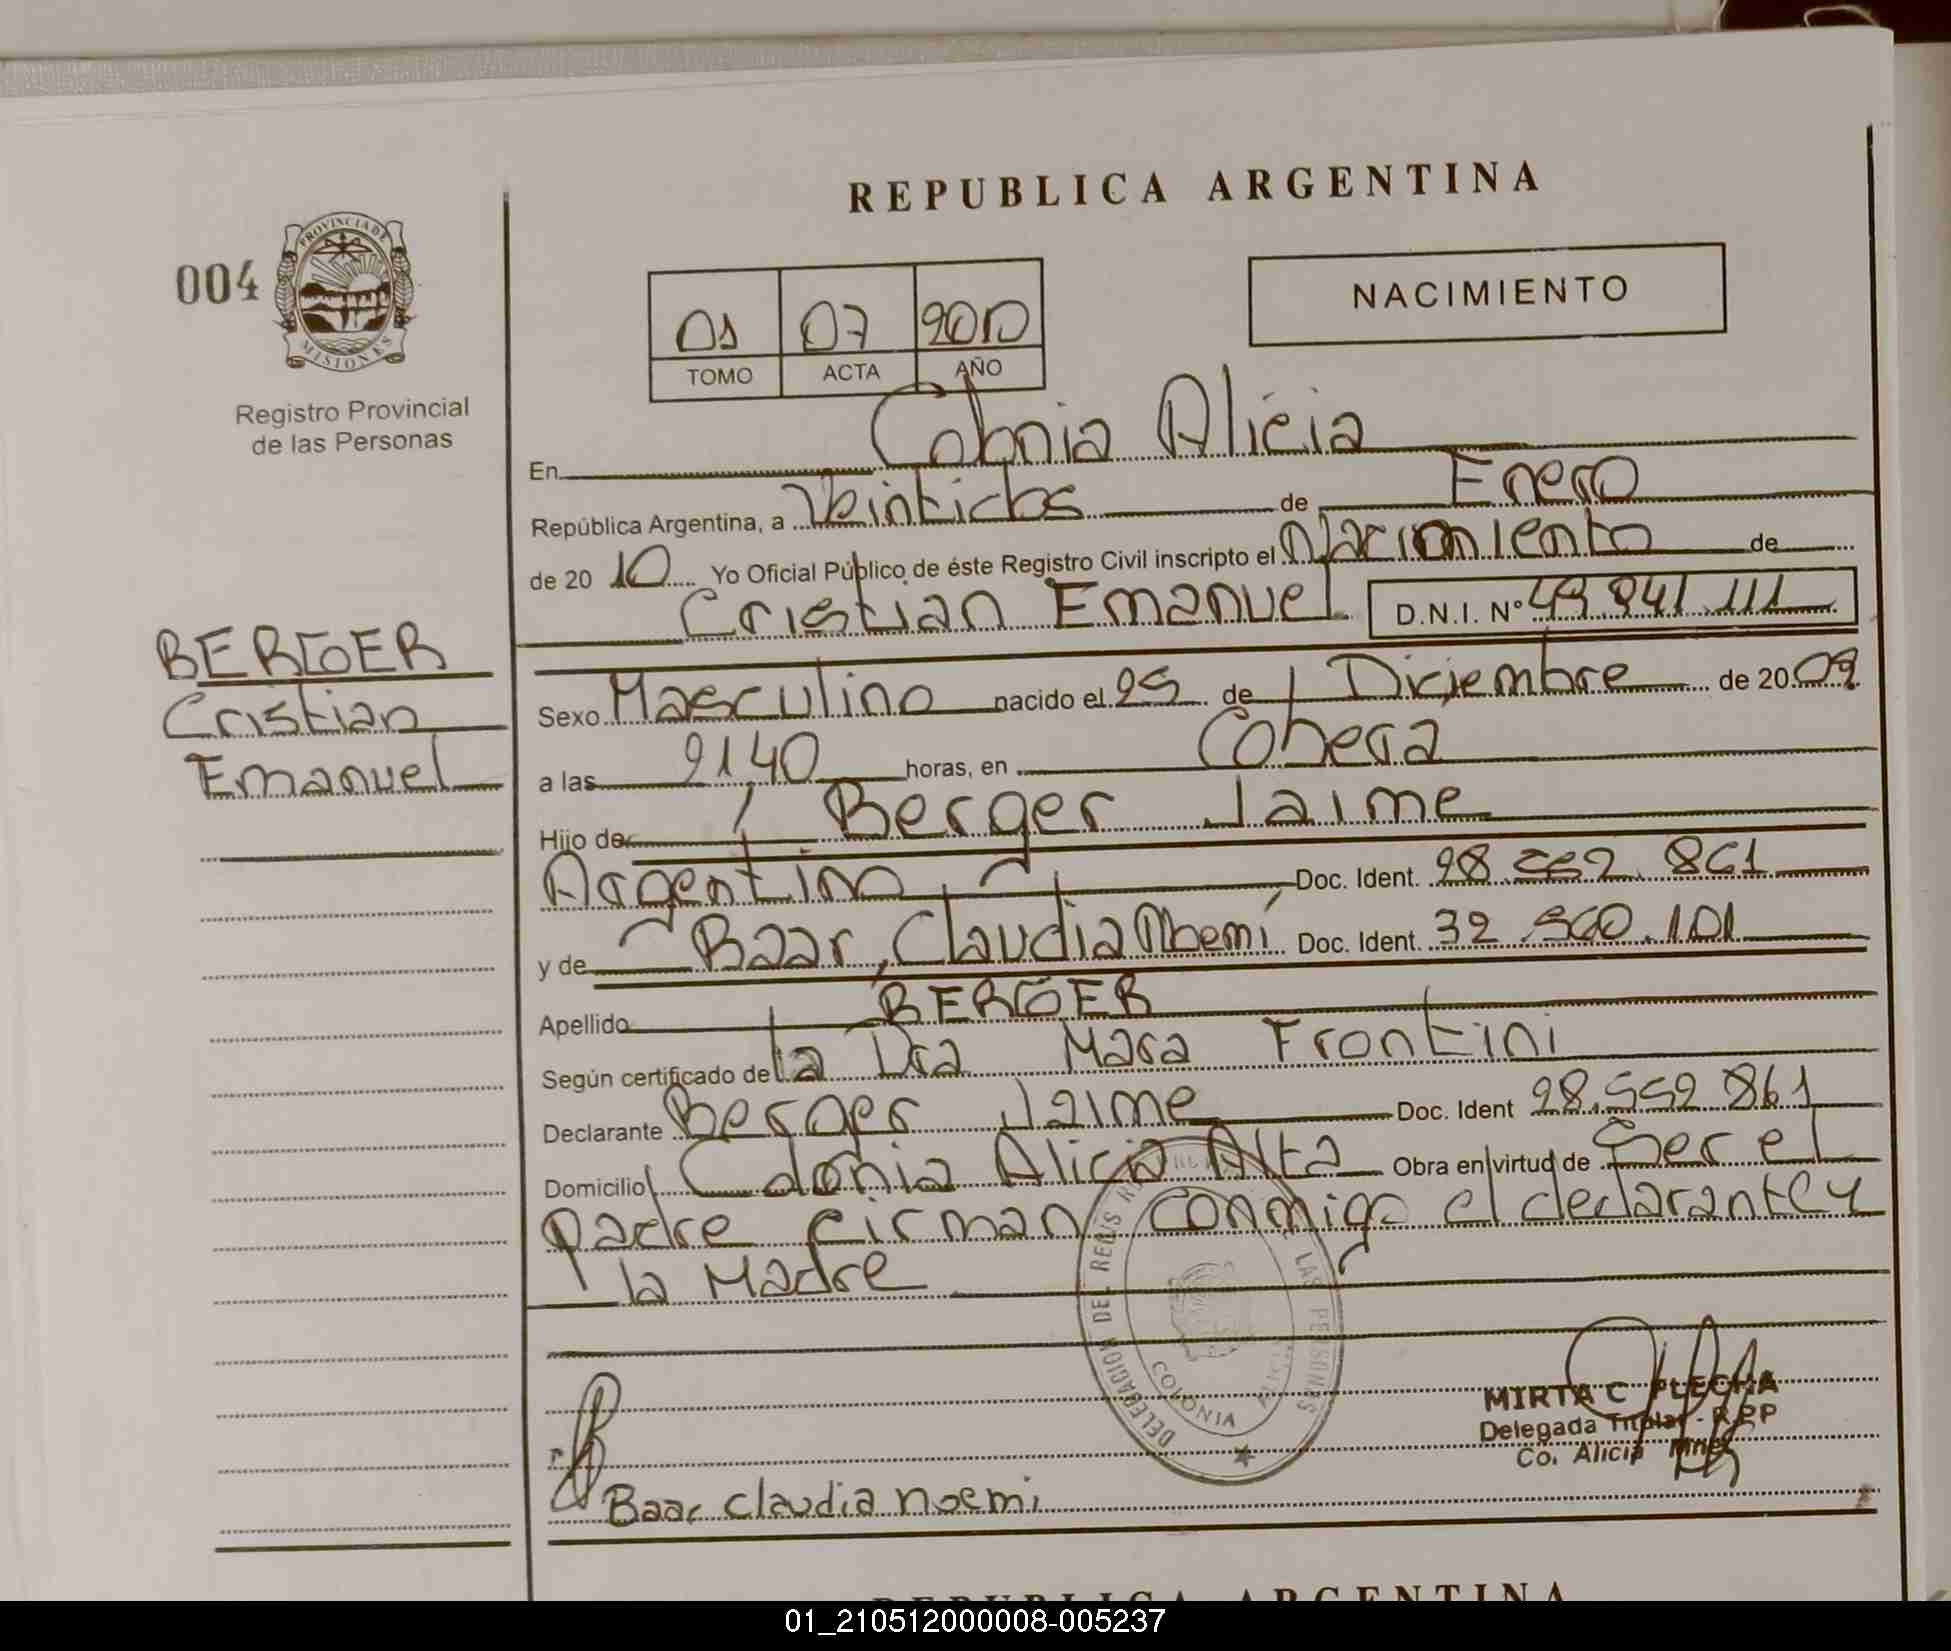 REPUBLICA ARGENTINA
004
PROVINCIA DE
MISIONES
Registro Provincial
de las Personas
01 07 2010
TOMO ACTA AÑO
NACIMIENTO
En Colonia Alicia
República Argentina, a Veintidos de Enero
de 20 10 Yo Oficial Público de éste Registro Civil inscripto el Nacimiento de
Cristian Emanuel D.N.I. Nº 49.841.111
BERGER
Cristian
Emanuel
Sexo Masculino nacido el 25 de Diciembre de 20 09
a las 21,40 horas, en Obera
Hijo de Berger Jaime
Argentino Doc. Ident. 28.552.861
y de Baar, Claudia Noemí Doc. Ident. 32.560.101
Apellido BERGER
Según certificado de la Dra Mara Frontini
Declarante Berger Jaime Doc. Ident 28.552.861
Domicilio Colonia Alicia Alta Obra en virtud de Ser el
padre firman conmigo el declarante y
la Madre
DELEGACION DEL REGIS LAS PERSONAS
COLONIA
MIRTA C PLECHA
Delegada Titular - R.P.P
Co. Alicia Mnes
Baar Claudia noemi
REPUBLICA ARGENTINA
01_210512000008-005237